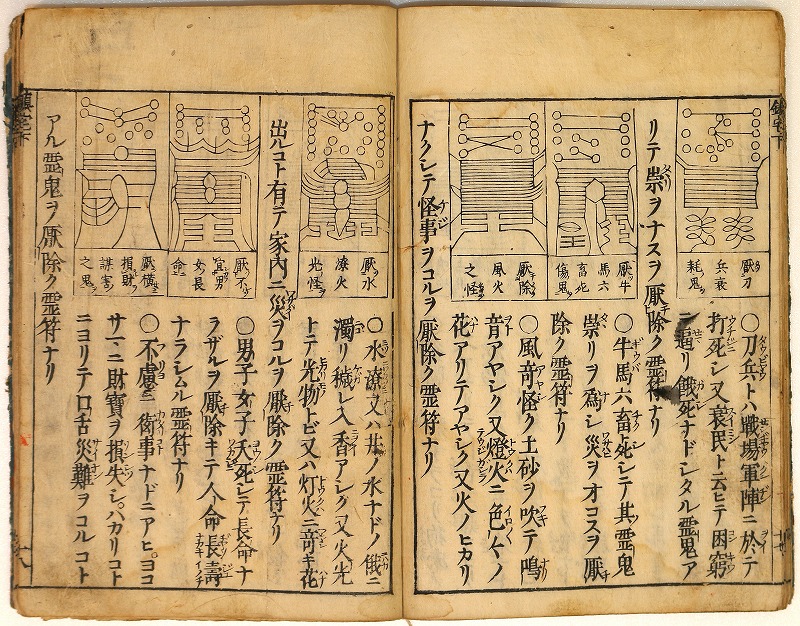 鎮宅下
厭刀
兵衰
耗鬼
〇刀兵トハ戰場軍陣ニ於テ
打死シ又衰民ト云ヒテ困窮
逼リ餓死ナドシタル霊鬼ア
リテ祟ヲナスヲ厭除ク霊符ナリ
厭牛
馬六
畜死
傷鬼
〇牛馬六畜ト死シテ其霊鬼
祟リヲ為シ災ヲオコスヲ厭
除ク霊符ナリ
厭除
風火
之怪
〇風竒怪ク土砂ヲ吹テ鳴
音アヤシク又燈火ニ色
花アリテアヤシク又火ノヒカリ
ナクシテ怪事ヲコルヲ厭除ク霊符ナリ
厭水
潦火
光怪
〇水潦又ハ井ノ水ナドノ俄ニ
濁リ穢レ入香アシク又火先
トテ光物トビ又ハ灯火ニ竒キ花
出ルコト有テ家内ニ災ヲコルヲ厭除ク霊符ナリ
厭不
宜男
女長
命
〇男子女子夭死シテ長命ナ
ラザルヲ厭除キテ人命長壽
ナラシムル霊符ナリ
厭横
損財
謀害
之鬼
〇不慮ニ衡事ナドニアヒ。ヨコ
サマニ財寶ヲ損失シ。ハカリコト
ニヨリテ口舌災難ヲコルコト
アル霊鬼ヲ厭除ク霊符ナリ
鎮宅下
十八